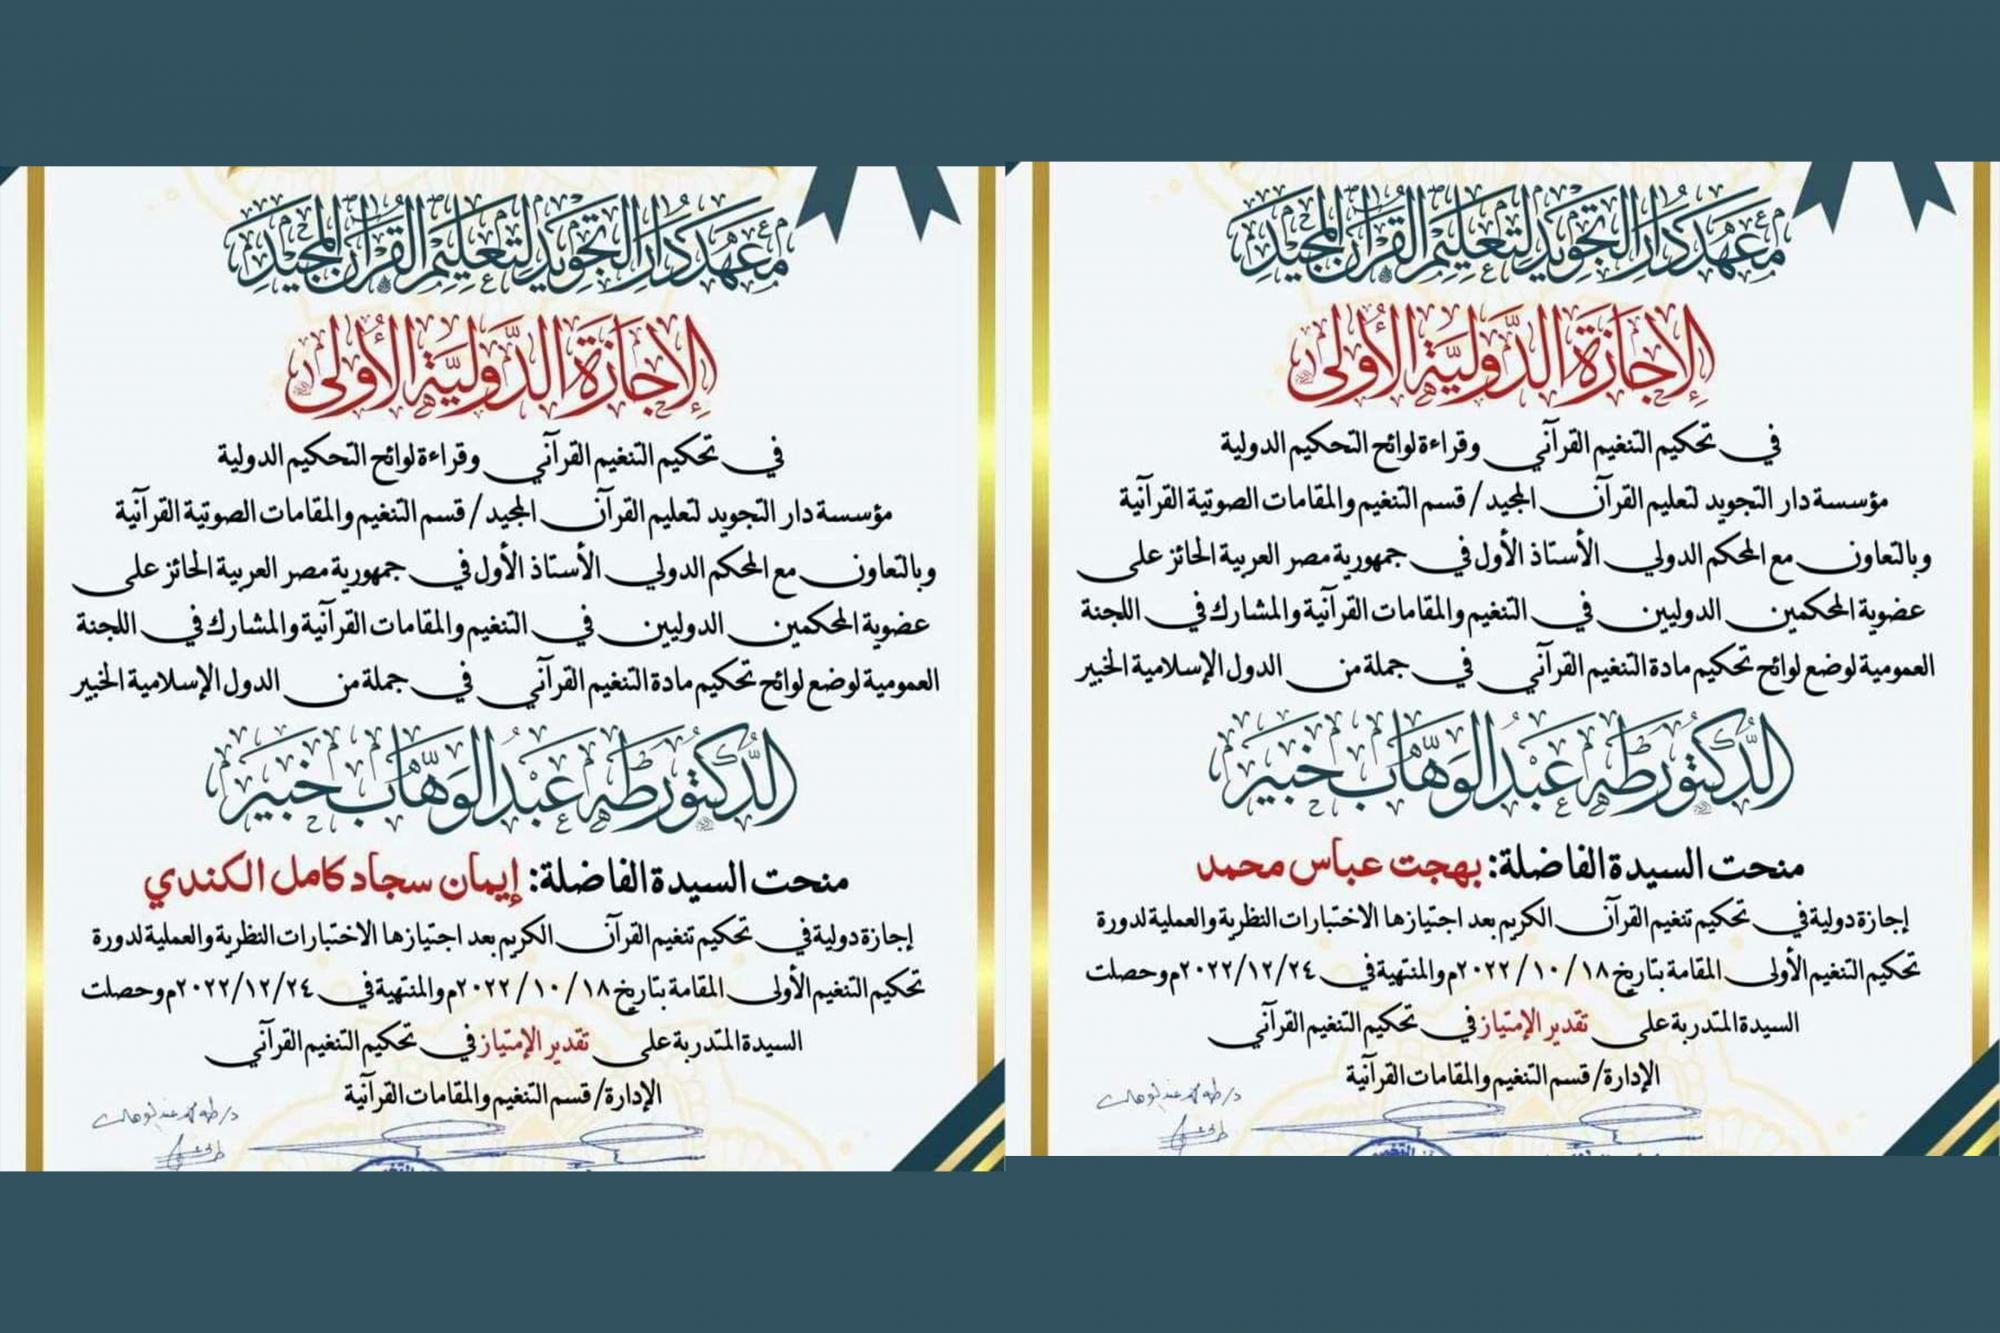 معهد دار التجويد لتعليم القرآن المجيد
الإجازة الدولية الأولى
في تحكيم التنغيم القرآني وقراءة لوائح التحكيم الدولية
مؤسسة دار التجويد لتعليم القرآن المجيد / قسم التنغيم والمقامات الصوتية القرآنية
وبالتعاون مع المحكم الدولي الأستاذ الأول في جمهورية مصر العربية الحائز على
عضوية المحكمين الدوليين في التنغيم والمقامات القرآنية والمشارك في اللجنة
العمومية لوضع لوائح تحكيم مادة التنغيم القرآني في جملة من الدول الإسلامية الخبير
الدكتور طه عبد الوهاب خبير
منحت السيدة الفاضلة: بهجت عباس محمد
إجازة دولية في تحكيم تنغيم القرآن الكريم بعد اجتيازها الاختبارات النظرية والعملية لدورة
تحكيم التنغيم الأولى المقامة بتاريخ ١٨ / ١٠ / ٢٠٢٢م والمنتهية في ٢٠٢٢/١٢/٢٤م وحصلت
السيدة المتدربة على تقدير الإمتياز في تحكيم التنغيم القرآني
الإدارة / قسم التنغيم والمقامات القرآنية
د/ طه عبد الوهاب
معهد دار التجويد لتعليم القرآن المجيد
الإجازة الدولية الأولى
في تحكيم التنغيم القرآني وقراءة لوائح التحكيم الدولية
مؤسسة دار التجويد لتعليم القرآن المجيد / قسم التنغيم والمقامات الصوتية القرآنية
وبالتعاون مع المحكم الدولي الأستاذ الأول في جمهورية مصر العربية الحائز على
عضوية المحكمين الدوليين في التنغيم والمقامات القرآنية والمشارك في اللجنة
العمومية لوضع لوائح تحكيم مادة التنغيم القرآني في جملة من الدول الإسلامية الخبير
الدكتور طه عبد الوهاب خبير
منحت السيدة الفاضلة: إيمان سجاد كامل الكندي
إجازة دولية في تحكيم تنغيم القرآن الكريم بعد اجتيازها الاختبارات النظرية والعملية لدورة
تحكيم التنغيم الأولى المقامة بتاريخ ١٨ / ١٠ / ٢٠٢٢م والمنتهية في ٢٠٢٢/١٢/٢٤م وحصلت
السيدة المتدربة على تقدير الإمتياز في تحكيم التنغيم القرآني
الإدارة / قسم التنغيم والمقامات القرآنية
د/ طه عبد الوهاب